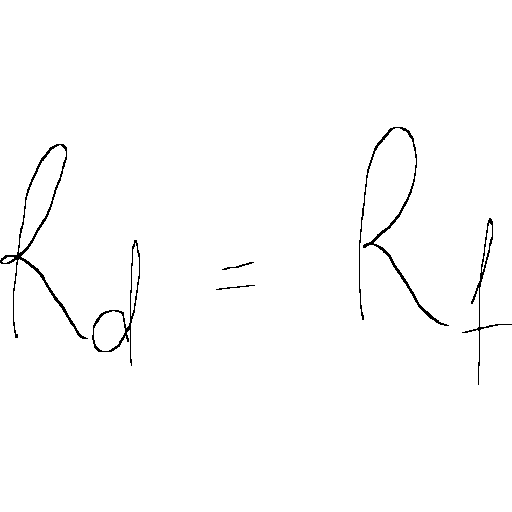 R_d = R_f